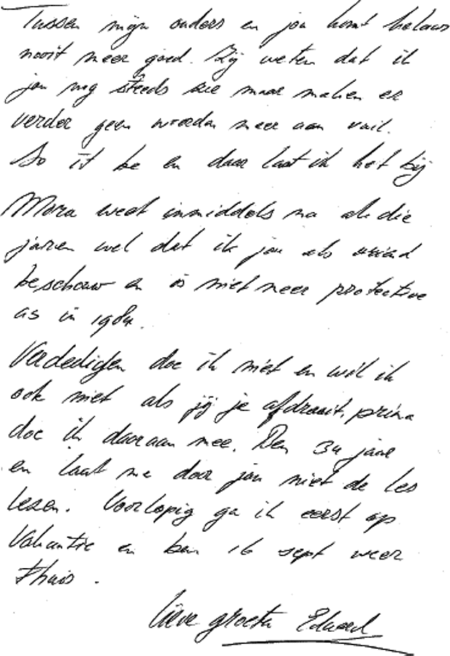 Tussen mijn ouders en jou komt helaas
nooit meer goed. Zij weten dat ik
jou nog steeds zie maar maken er
verder geen woorden meer aan vuil.
So it be en daar laat ik het bij
Mora weet inmiddels na al die
jaren wel dat ik jou als vriend
beschouw en is niet meer protective
as in 1984.
Verdedigen doe ik niet en wil ik
ook niet als jij je afdraait, prima
doe ik daaraan mee. Ben 34 jaar
en laat me door jou niet de les
lezen. Voorlopig ga ik eerst op
Vakantie en ben 16 sept weer
thuis.
Lieve groeten Eduard